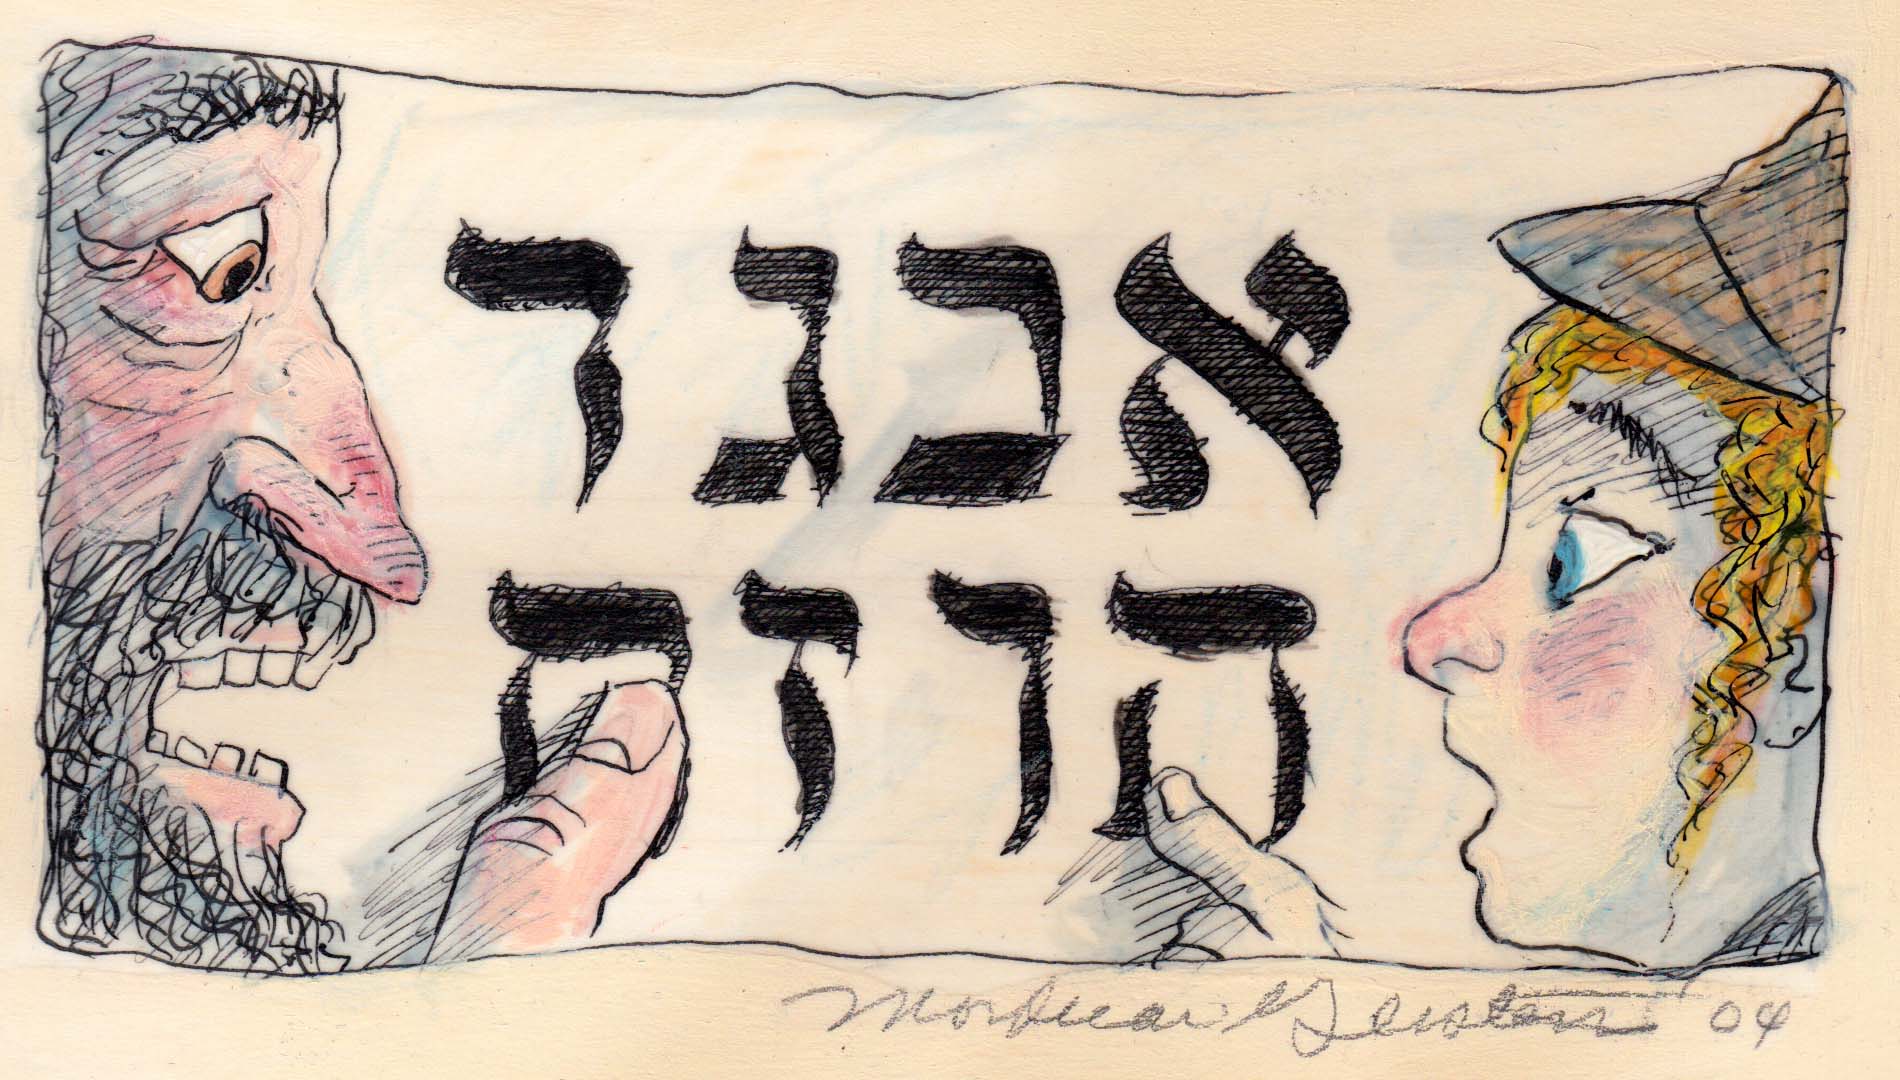 אבגד
הוזח
Mordicai Gerstein 04